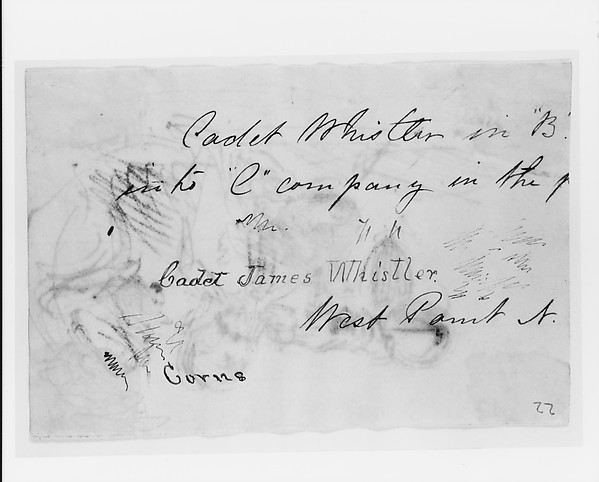 Cadet Whistler in "B"
into "C" company in the p
Cadet James Whistler.
West Point N.
Corns
22